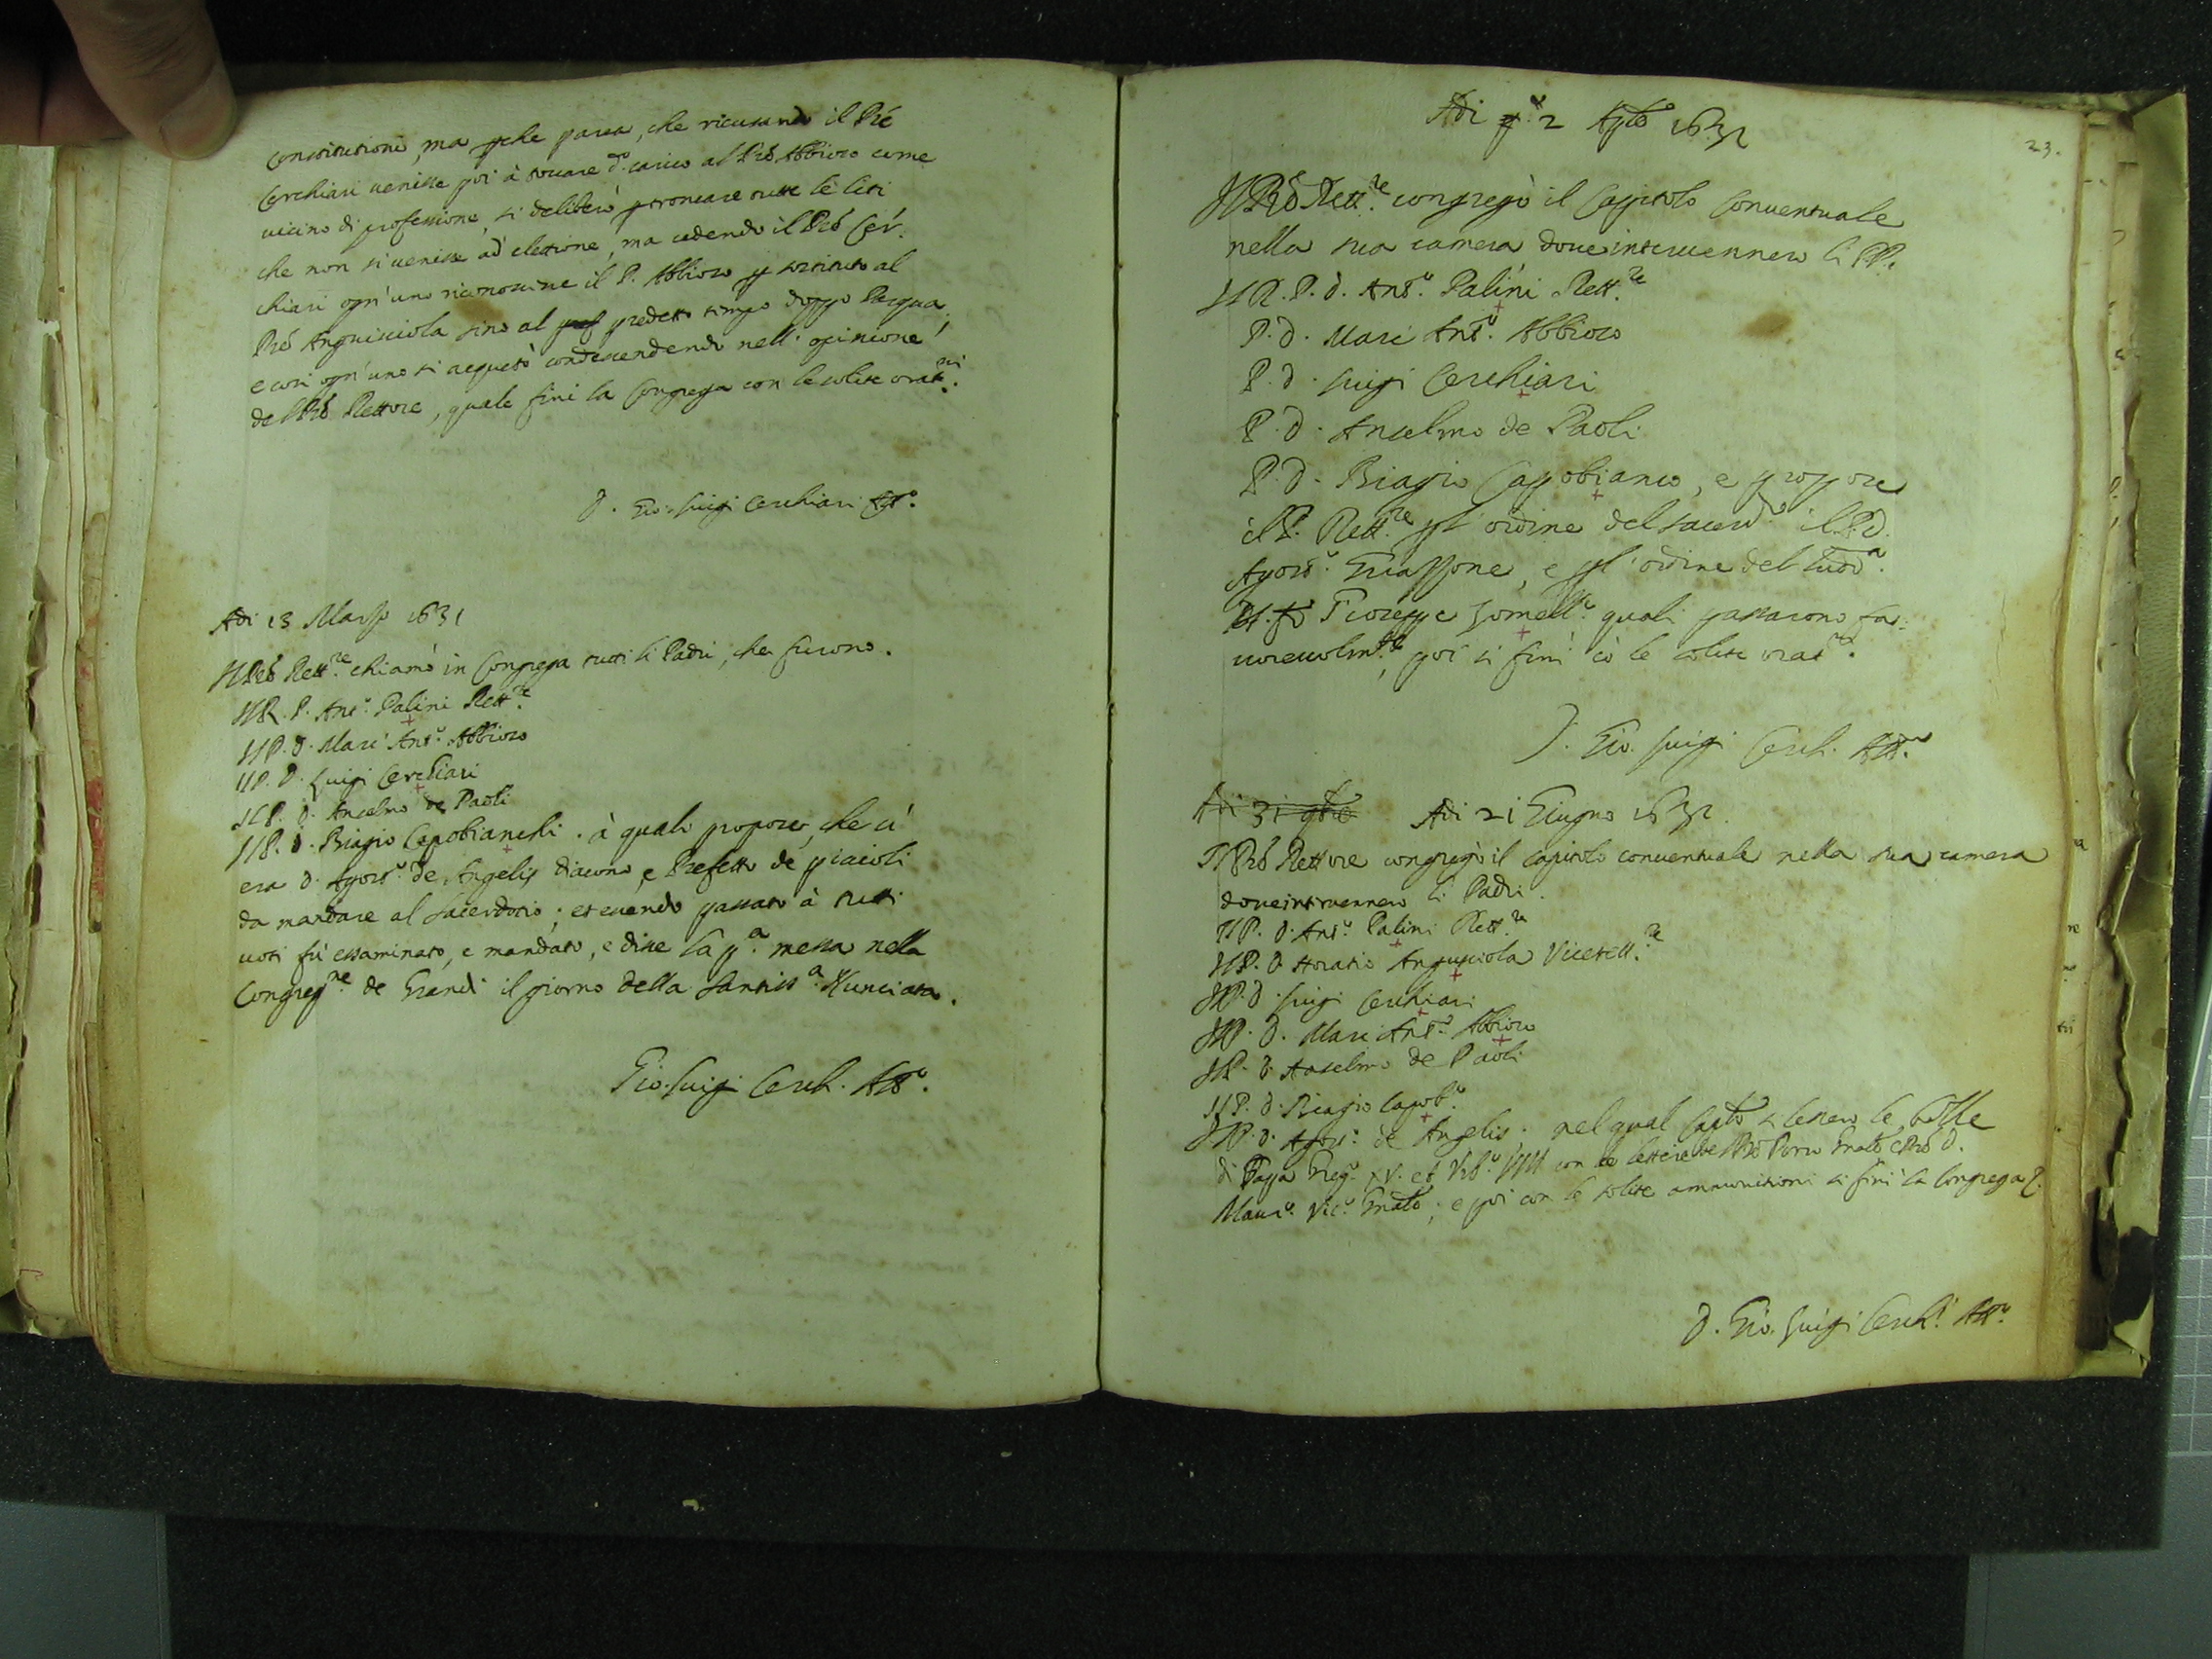 Constitutioni, ma pche parea, che ricusando il Pré
Cerchiari venisse poi à toccare d.º carico al Prè Abbioso come
vicino di professione, si deliberò p troncare tutte le liti
che non si venisse ad' elettione, ma cedendo il Prè Cer.
chiari ogn'uno riconoscesse il P. Abbioso p sostituto al
Prè Anguisciola sino al predetto tempo doppo Pasqua,
e così ogn'uno si acquetò condescendendo nell'opinione
del Prè Rettore, quale finì la Congrega con le solite orat.ni
D. Gio. Luigi Cerchiari Att.º
Adi 13 Marzo 1631
Il Prè Rett.re chiamò in Congrega tutti li Padri, che furono.
Il R. P. Ant.º Palini Rett.re
Il P. D. Marc' Ant.º Abbioso
Il P. D. Luigi Cerchiari
Il P. D. Anselmo de Paoli
Il P. D. Biagio Capobianchi. à quali propose, che ci
era D. Agost.º de Angelis diacono, e Prefetto de' piccioli
da mandare al sacerdotio; et essendo passato à tutti
voti fu essaminato, e mandato, e disse la p.ª messa nella
Congreg.ne de Grandi il giorno della Santiss.ª Nunciata.
Gio. Luigi Cerch. Att.º
23.
Adi 2 Aple 1631
Il Prè Rett.re congregò il Capitolo Conventuale
nella sua camera dove intervennero li PP.
Il R. P. D. Ant.º Palini Rett.re
P. D. Marc' Ant.º Abbioso
P. D. Luigi Cerchiari
P. D. Anselmo de Paoli
P. D. Biagio Capobianco, e propose
il P. Rett.re p l'ordine del sacerd.º il P. D.
Agost.º e p l'ordine del
Gioseppe quali passarono fa:
vorevolm.te, poi si finì cò le solite orat.ni
D. Gio. Luigi Cerch. Att.º
Adi 31 Adi 21 Giugno 1631.
Il Prè Rettore congregò il Capitolo conventuale nella sua camera
dove intervennero li Padri.
Il P. D. Ant.º Palini Rett.re
Il P. D. Horatio Anguisciola Vicerett.re
Il P. D. Luigi Cerchiari
Il P. D. Marc' Ant.º Abbioso
Il P. D. Anselmo de Paoli
Il P. D. Biagio Capob.º
Il P. D. Agost.º de Angelis; nel qual Capto si lessero le bolle
di Papa Greg.º XV. et Urb.º VIII con le lettere del Prè Porro Gnale e Prè D.
Maur.º Vic.º Gnale; e poi con le solite ammonitioni si finì la Congrega.
D. Gio. Luigi Cerch. Att.º